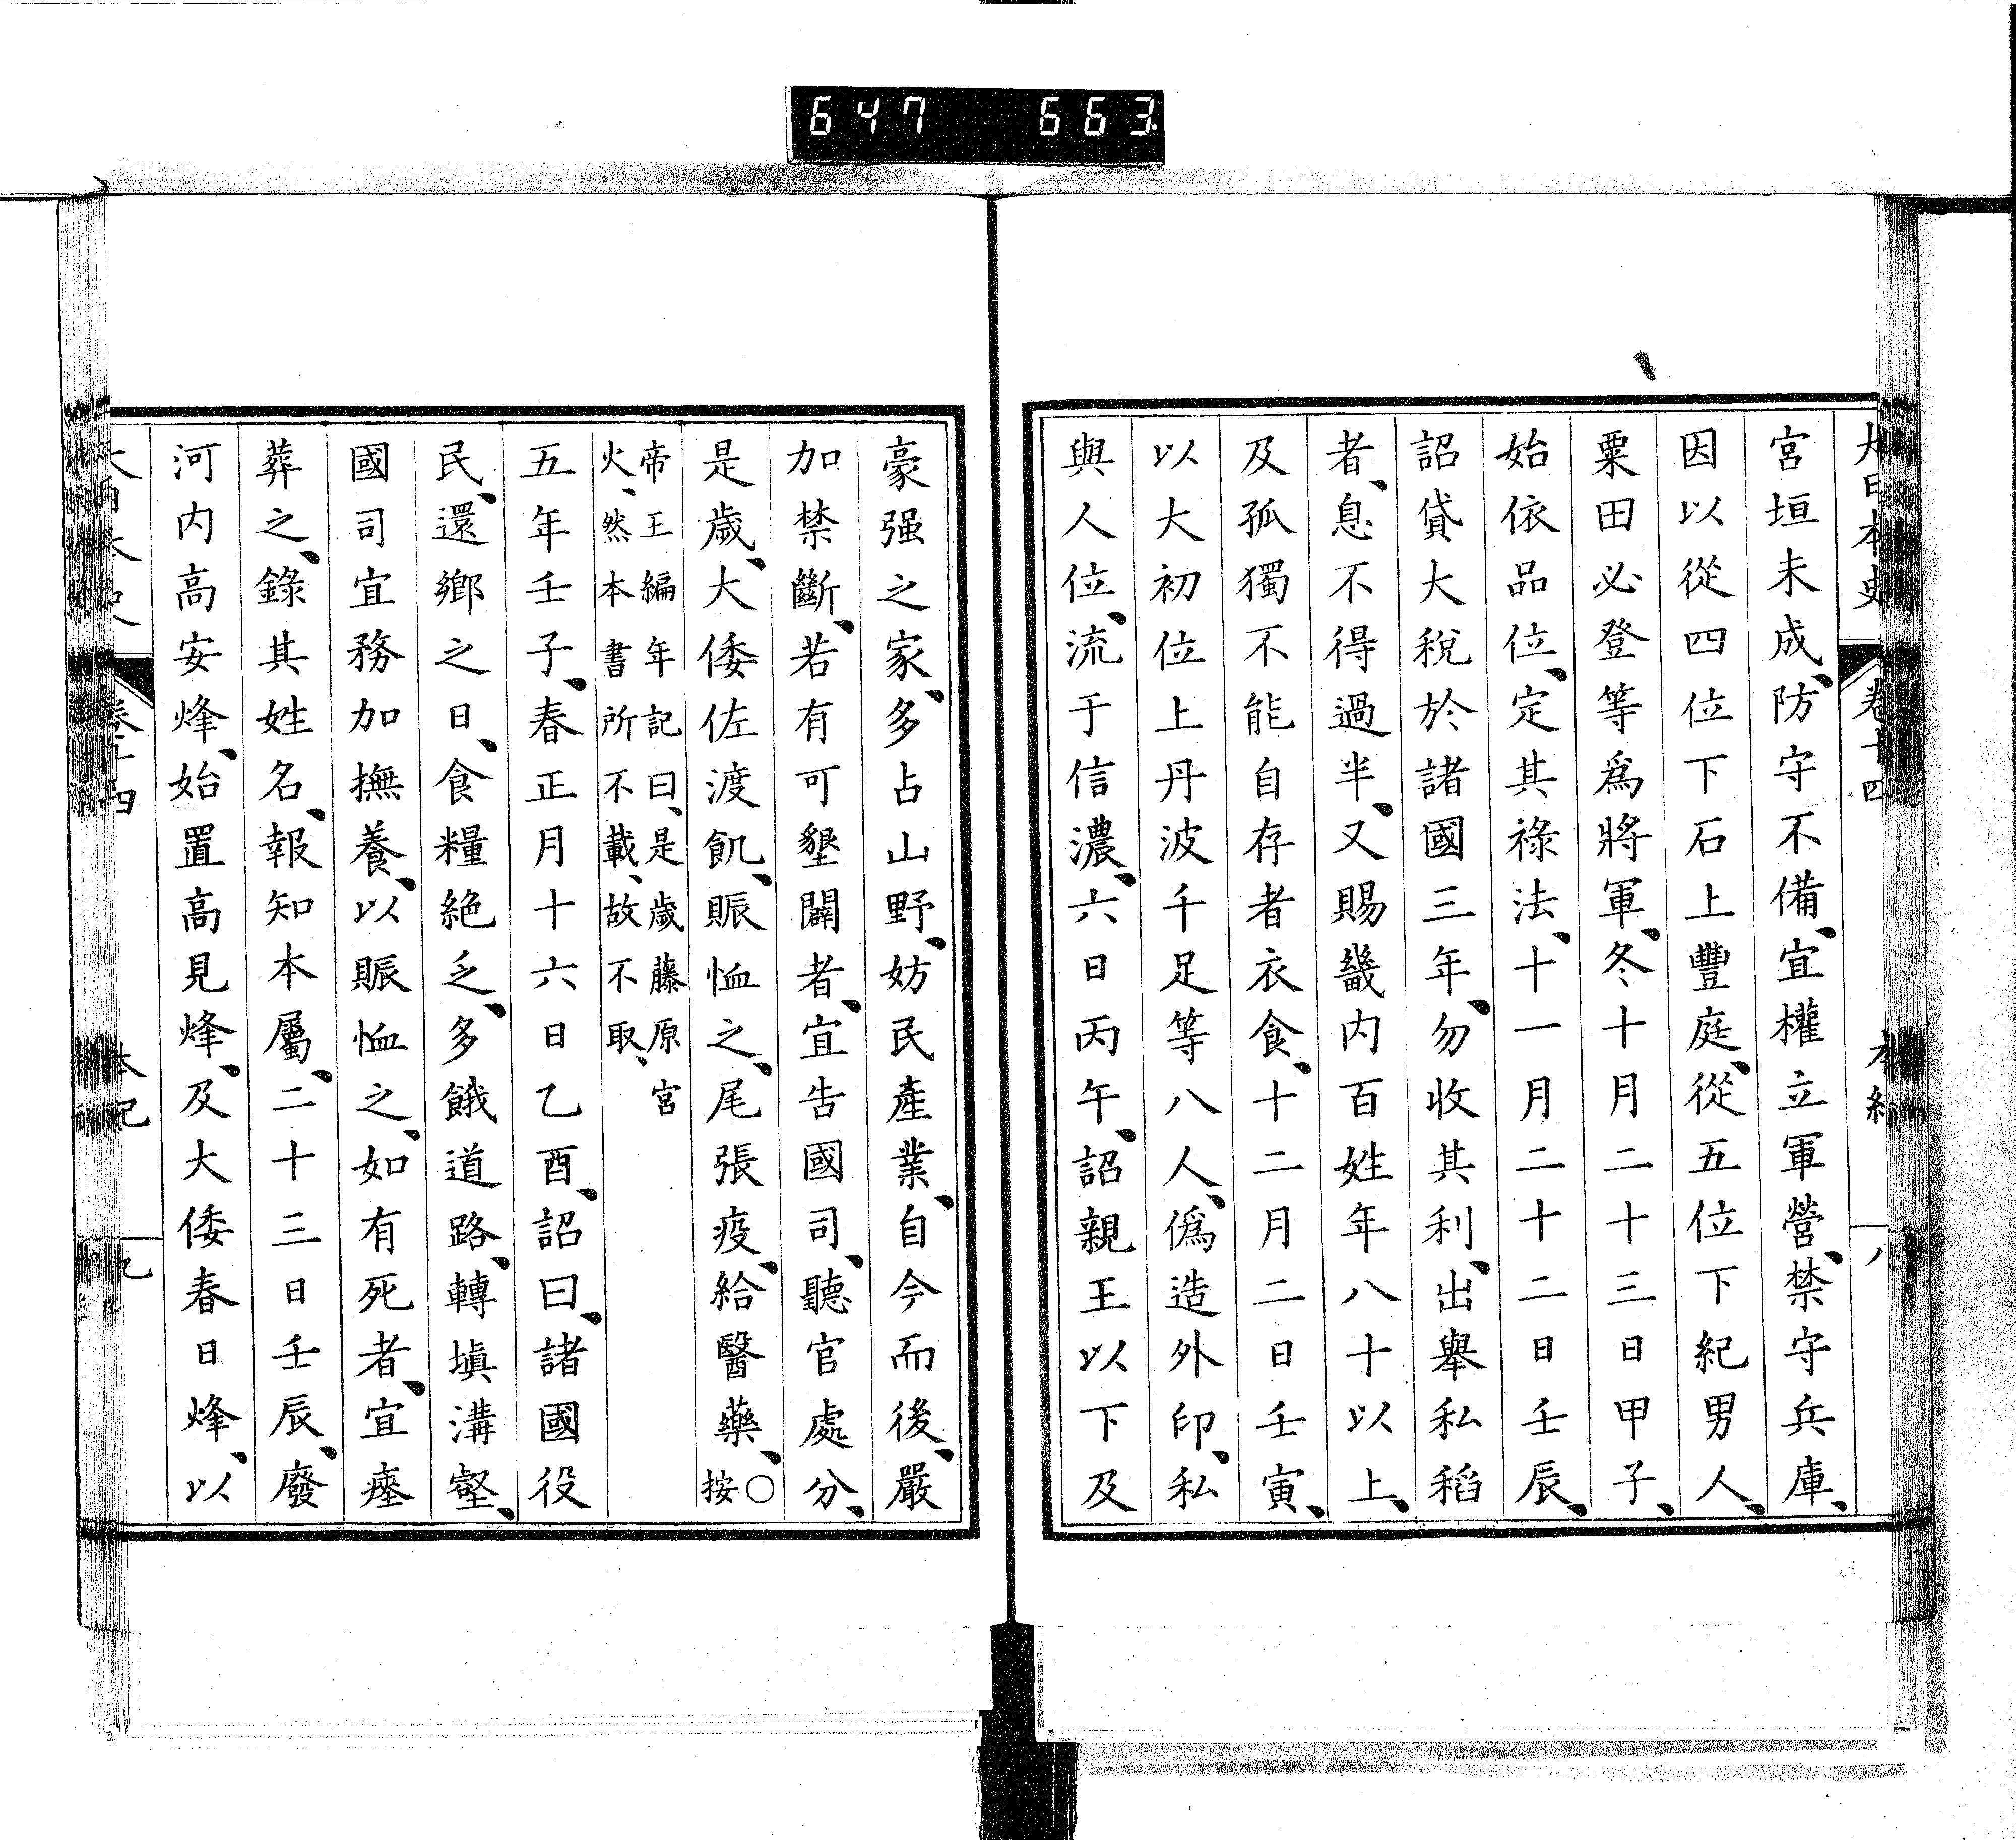 647 663
大日本史 卷十四 本紀 八
宮垣未成、防守不備、宜權立軍營、禁守兵庫、
因以從四位下石上豐庭、從五位下紀男人、
粟田必登等爲將軍、冬十月二十三日甲子、
始依品位、定其祿法、十一月二十二日壬辰、
詔貸大稅於諸國三年、勿收其利、出舉私稻
者、息不得過半、又賜畿内百姓年八十以上、
及孤獨不能自存者衣食、十二月二日壬寅、
以大初位上丹波千足等八人、僞造外印、私
與人位、流于信濃、六日丙午、詔親王以下及
豪强之家、多占山野、妨民產業、自今而後、嚴
加禁斷、若有可墾闢者、宜告國司、聽官處分、
是歲、大倭佐渡飢、賑恤之、尾張疫、給醫藥、○按
帝王編年記曰、是歲藤原宮
火、然本書所不載、故不取、
五年壬子、春正月十六日乙酉、詔曰、諸國役
民、還鄉之日、食糧絶乏、多餓道路、轉塡溝壑、
國司宜務加撫養、以賑恤之、如有死者、宜瘞
葬之、錄其姓名、報知本屬、二十三日壬辰、廢
河内高安烽、始置高見烽、及大倭春日烽、以
卷十四 本紀 九